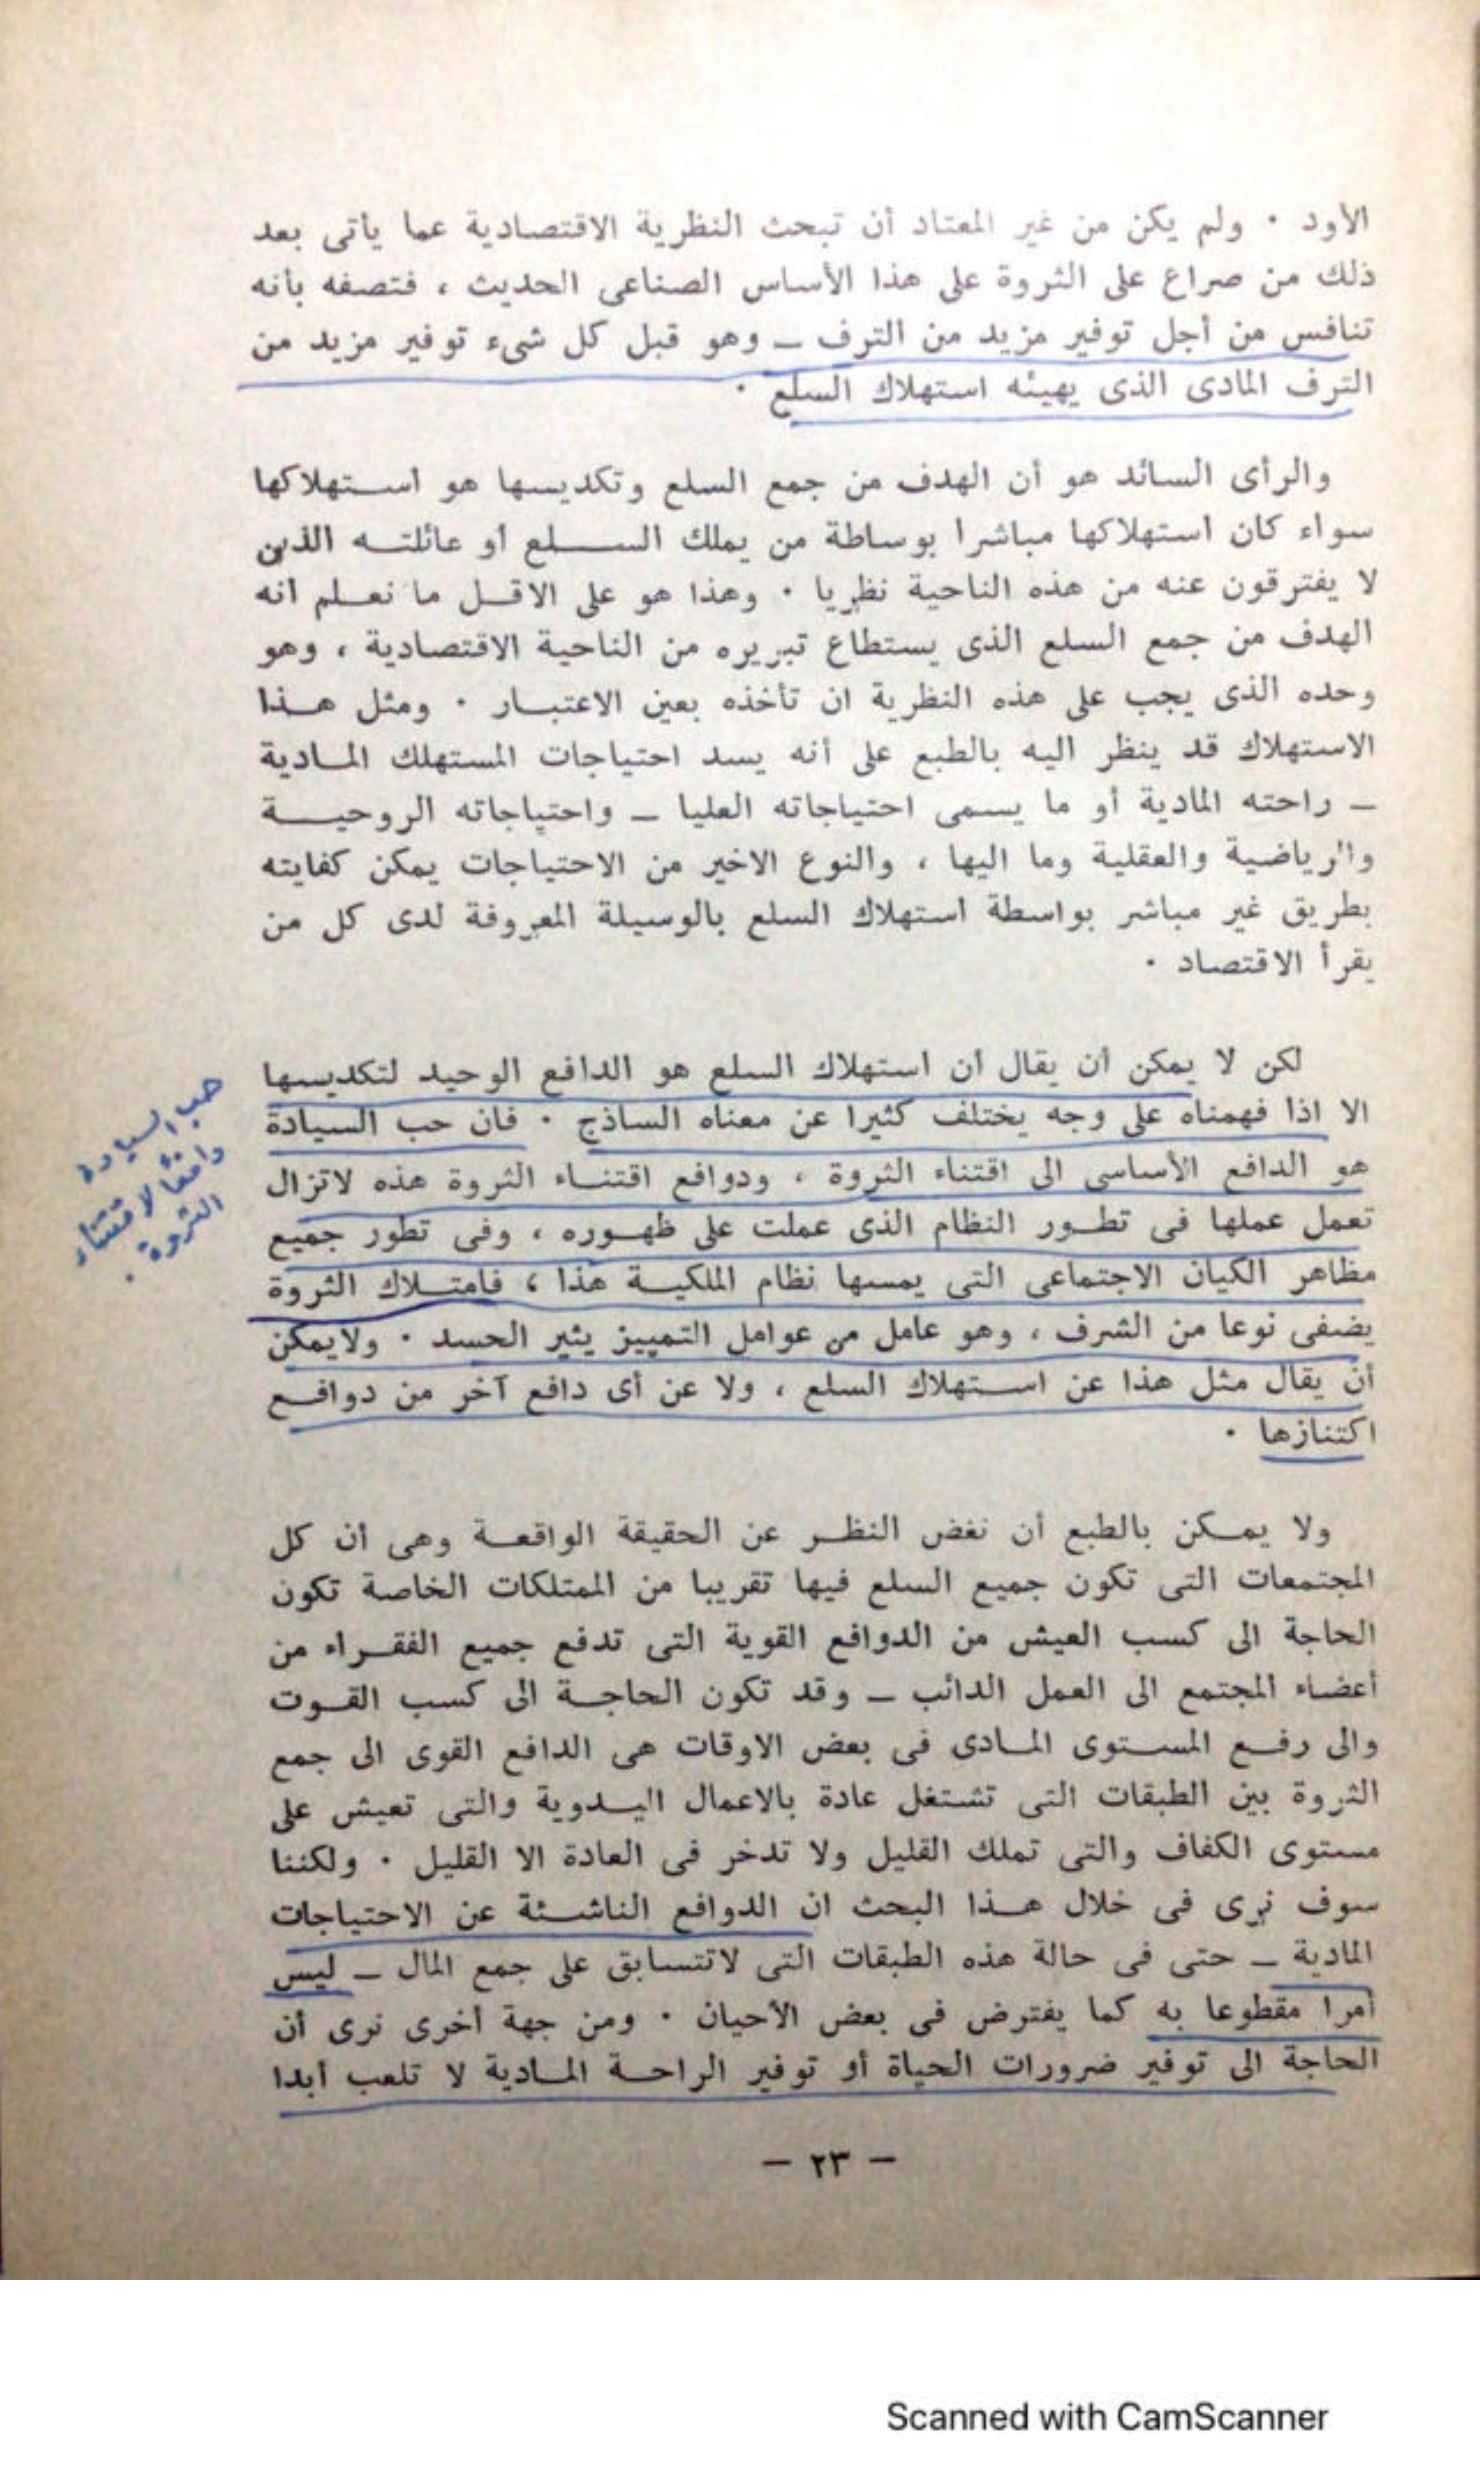 الأود . ولم يكن من غير المعتاد أن تبحث النظرية الاقتصادية عما يأتى بعد
ذلك من صراع على الثروة على هذا الأساس الصناعى الحديث ، فتصفه بأنه
تنافس من أجل توفير مزيد من الترف ــ وهو قبل كل شىء توفير مزيد من
الترف المادى الذى يهيئه استهلاك السلع .
والرأى السائد هو أن الهدف من جمع السلع وتكديسها هو استهلاكها
سواء كان استهلاكها مباشرا بوساطة من يملك السلع أو عائلته الذين
لا يفترقون عنه من هذه الناحية نظريا . وهذا هو على الاقل ما نعلم انه
الهدف من جمع السلع الذى يستطاع تبريره من الناحية الاقتصادية ، وهو
وحده الذى يجب على هذه النظرية ان تأخذه بعين الاعتبار . ومثل هذا
الاستهلاك قد ينظر اليه بالطبع على أنه يسد احتياجات المستهلك المادية
ــ راحته المادية أو ما يسمى احتياجاته العليا ــ واحتياجاته الروحية
والرياضية والعقلية وما اليها ، والنوع الاخير من الاحتياجات يمكن كفايته
بطريق غير مباشر بواسطة استهلاك السلع بالوسيلة المعروفة لدى كل من
يقرأ الاقتصاد .
لكن لا يمكن ان يقال ان استهلاك السلع هو الدافع الوحيد لتكديسها
الا اذا فهمناه على وجه يختلف كثيرا عن معناه الساذج . فان حب السيادة
هو الدافع الأساسى الى اقتناء الثروة ، ودوافع اقتناء الثروة هذه لاتزال
تعمل عملها فى تطور النظام الذى عملت على ظهوره ، وفى تطور جميع
مظاهر الكيان الاجتماعى التى يمسها نظام الملكية هذا ، فامتلاك الثروة
يضفى نوعا من الشرف ، وهو عامل من عوامل التمييز يثير الحسد . ولايمكن
أن يقال مثل هذا عن استهلاك السلع ، ولا عن أى دافع آخر من دوافع
اكتنازها .
حب السيادة
دافعا لاقتناء
الثروة .
ولا يمكن بالطبع أن نغض النظر عن الحقيقة الواقعة وهى ان كل
المجتمعات التى تكون جميع السلع فيها تقريبا من الممتلكات الخاصة تكون
الحاجة الى كسب العيش من الدوافع القوية التى تدفع جميع الفقراء من
أعضاء المجتمع الى العمل الدائب ــ وقد تكون الحاجة الى كسب القوت
والى رفع المستوى المادى فى بعض الاوقات هى الدافع القوى الى جمع
الثروة بين الطبقات التى تشتغل عادة بالاعمال اليدوية والتى تعيش على
مستوى الكفاف والتى تملك القليل ولا تدخر فى العادة الا القليل . ولكننا
سوف نرى فى خلال هذا البحث ان الدوافع الناشئة عن الاحتياجات
المادية ــ حتى فى حالة هذه الطبقات التى لاتتسابق على جمع المال ــ ليس
أمرا مقطوعا به كما يفترض فى بعض الأحيان . ومن جهة أخرى نرى أن
الحاجة الى توفير ضرورات الحياة أو توفير الراحة المادية لا تلعب أبدا
— ٢٣ —
Scanned with CamScanner